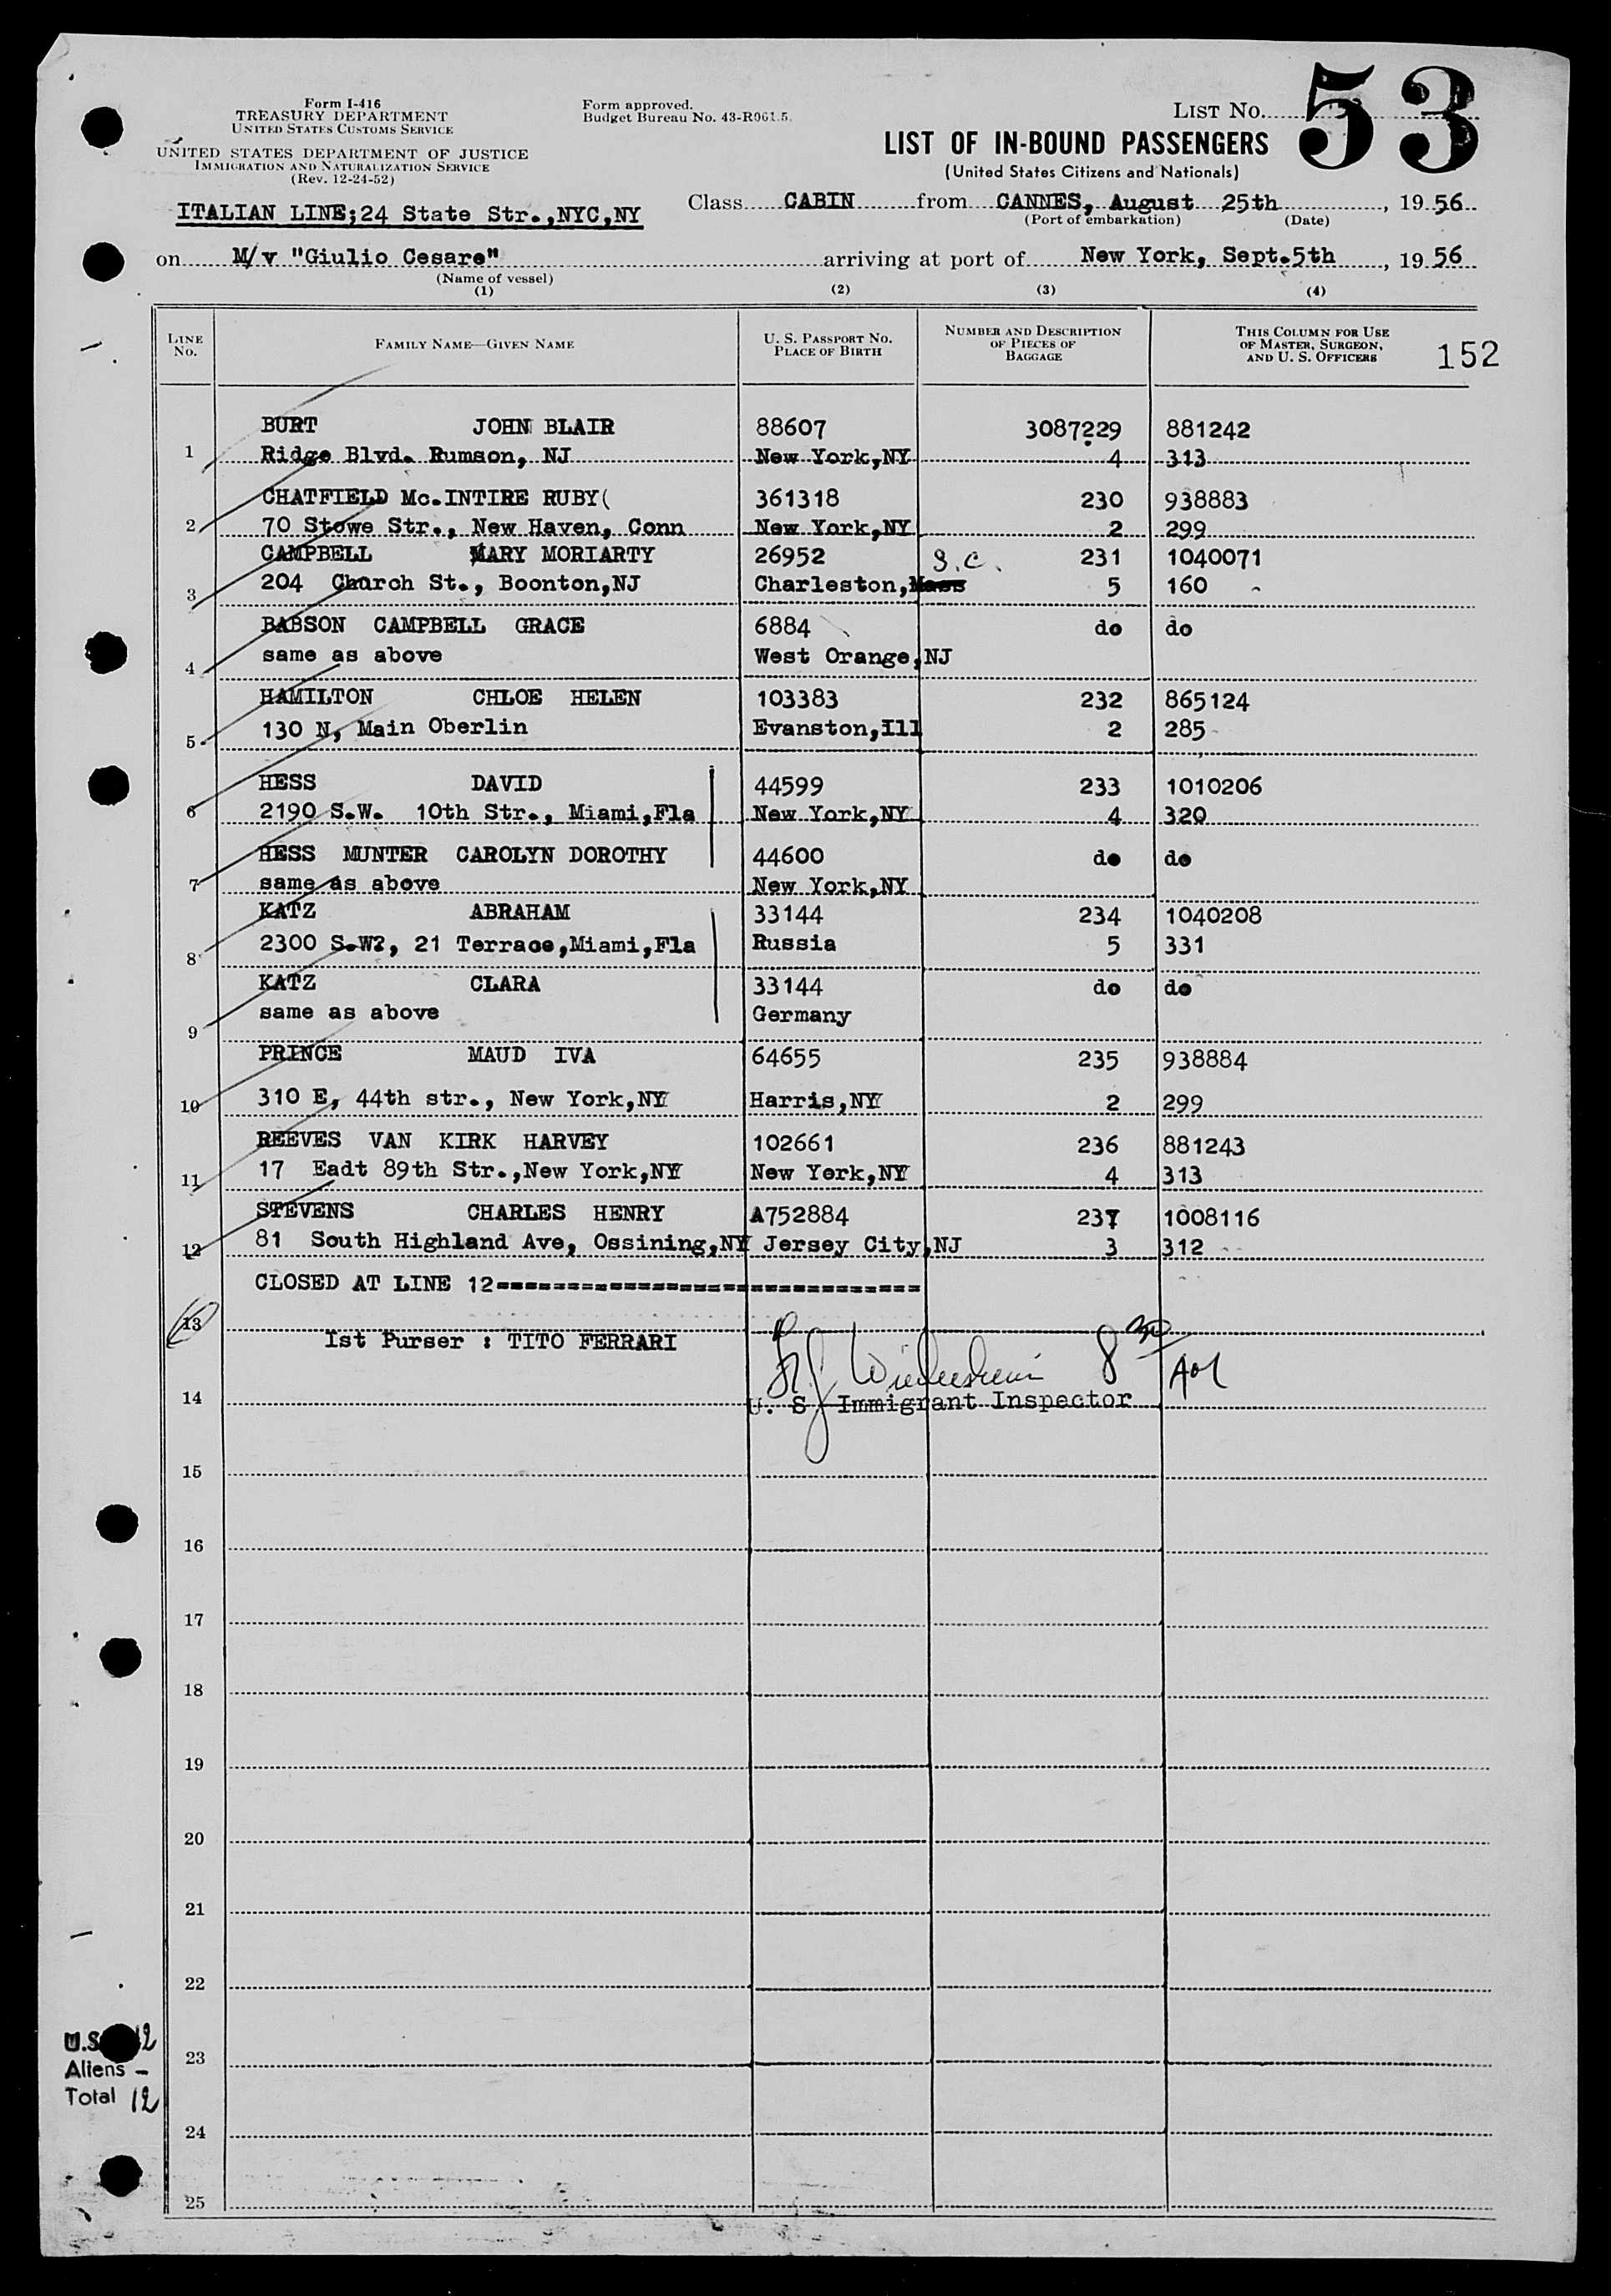 Form I-416
TREASURY DEPARTMENT
UNITED STATES CUSTOMS SERVICE
UNITED STATES DEPARTMENT OF JUSTICE
IMMIGRATION AND NATURALIZATION SERVICE
(Rev. 12-24-52)
Form approved.
Budget Bureau No. 43-R061.5.
LIST No. 53
LIST OF IN-BOUND PASSENGERS
(United States Citizens and Nationals)
ITALIAN LINE;24 State Str.,NYC,NY
Class CABIN from CANNES, August 25th, 1956
(Port of embarkation) (Date)
on M/v "Giulio Cesare" arriving at port of New York, Sept.5th, 1956
(Name of vessel)
(1) (2) (3) (4)
LINE No. FAMILY NAME—GIVEN NAME U. S. PASSPORT No. PLACE OF BIRTH NUMBER AND DESCRIPTION OF PIECES OF BAGGAGE THIS COLUMN FOR USE OF MASTER, SURGEON, AND U. S. OFFICERS 152
BURT JOHN BLAIR 88607 3087229 881242
1 Ridge Blvd. Rumson, NJ New York,NY 4 313
CHATFIELD Mc.INTIRE RUBY( 361318 230 938883
2 70 Stowe Str., New Haven, Conn New York,NY 2 299
CAMPBELL MARY MORIARTY 26952 S.C. 231 1040071
3 204 Church St., Boonton,NJ Charleston,Mass 5 160
BABSON CAMPBELL GRACE 6884 do do
4 same as above West Orange,NJ
HAMILTON CHLOE HELEN 103383 232 865124
5 130 N, Main Oberlin Evanston,Ill 2 285
HESS DAVID 44599 233 1010206
6 2190 S.W. 10th Str., Miami,Fla New York,NY 4 320
HESS MUNTER CAROLYN DOROTHY 44600 do do
7 same as above New York,NY
KATZ ABRAHAM 33144 234 1040208
8 2300 S.W?, 21 Terrace,Miami,Fla Russia 5 331
KATZ CLARA 33144 do do
9 same as above Germany
PRINCE MAUD IVA 64655 235 938884
10 310 E, 44th str., New York,NY Harris,NY 2 299
REEVES VAN KIRK HARVEY 102661 236 881243
11 17 Eadt 89th Str.,New York,NY New York,NY 4 313
STEVENS CHARLES HENRY A752884 237 1008116
12 81 South Highland Ave, Ossining,NY Jersey City,NJ 3 312
CLOSED AT LINE 12==============================
13
1st Purser : TITO FERRARI 8 30
14 U. S. Immigrant Inspector
15
16
17
18
19
20
21
22
U.S. 12
23
Aliens -
Total 12
24
25